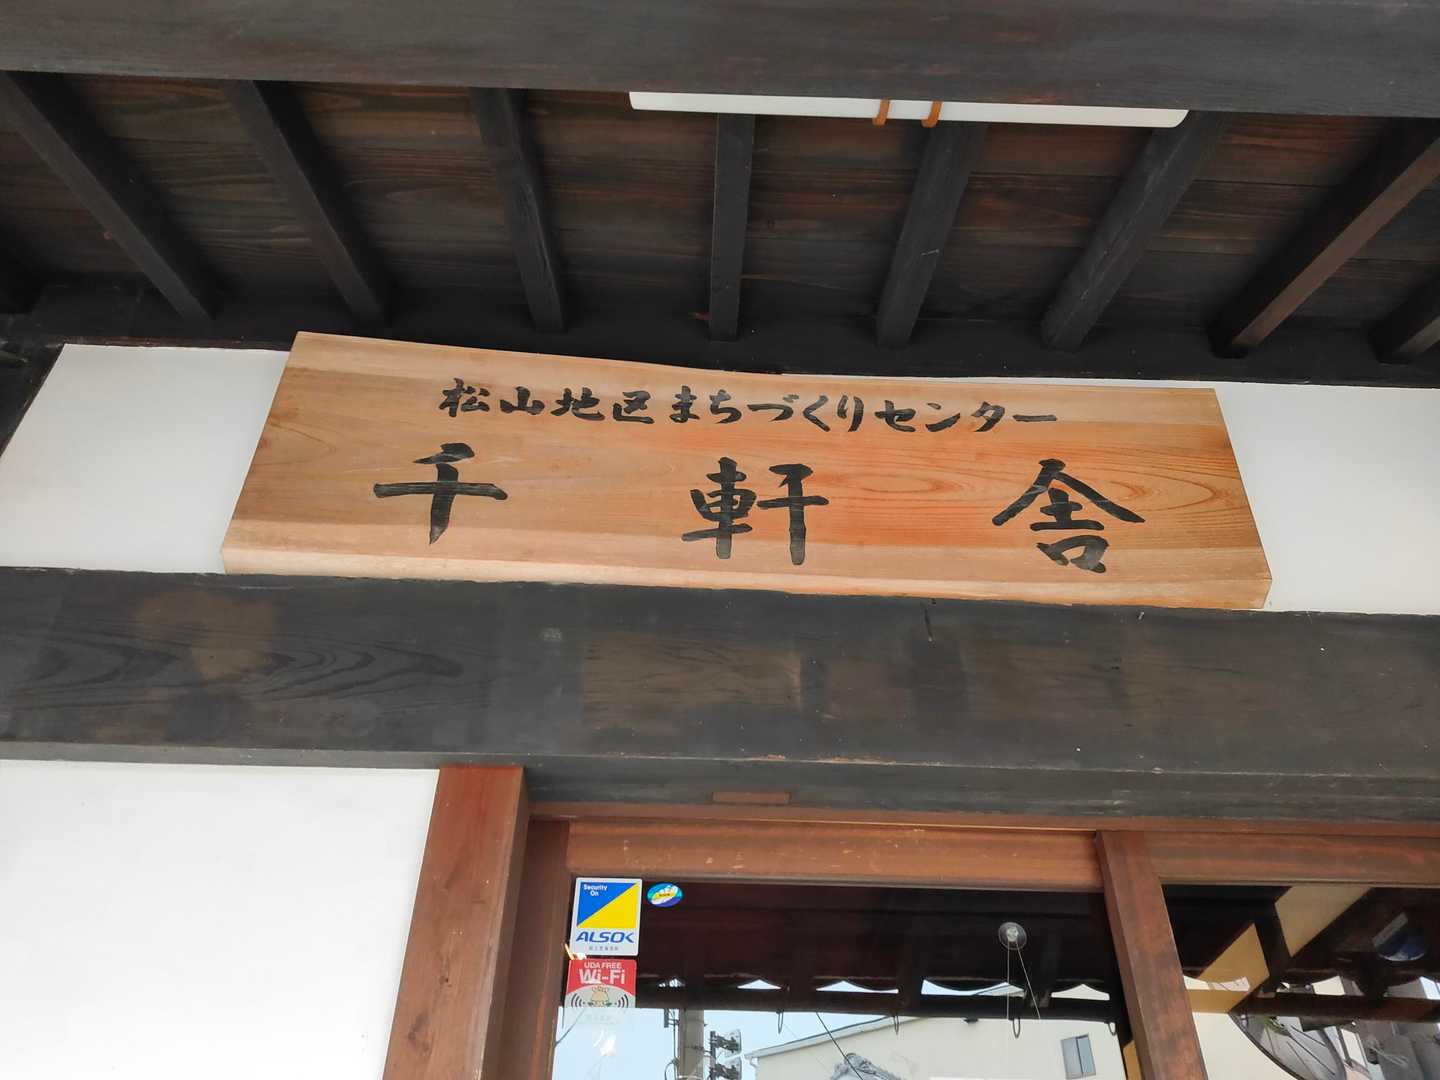 松山地区まちづくりセンター
千軒舎
Security
On
ALSOK
UDA FREE
Wi-Fi